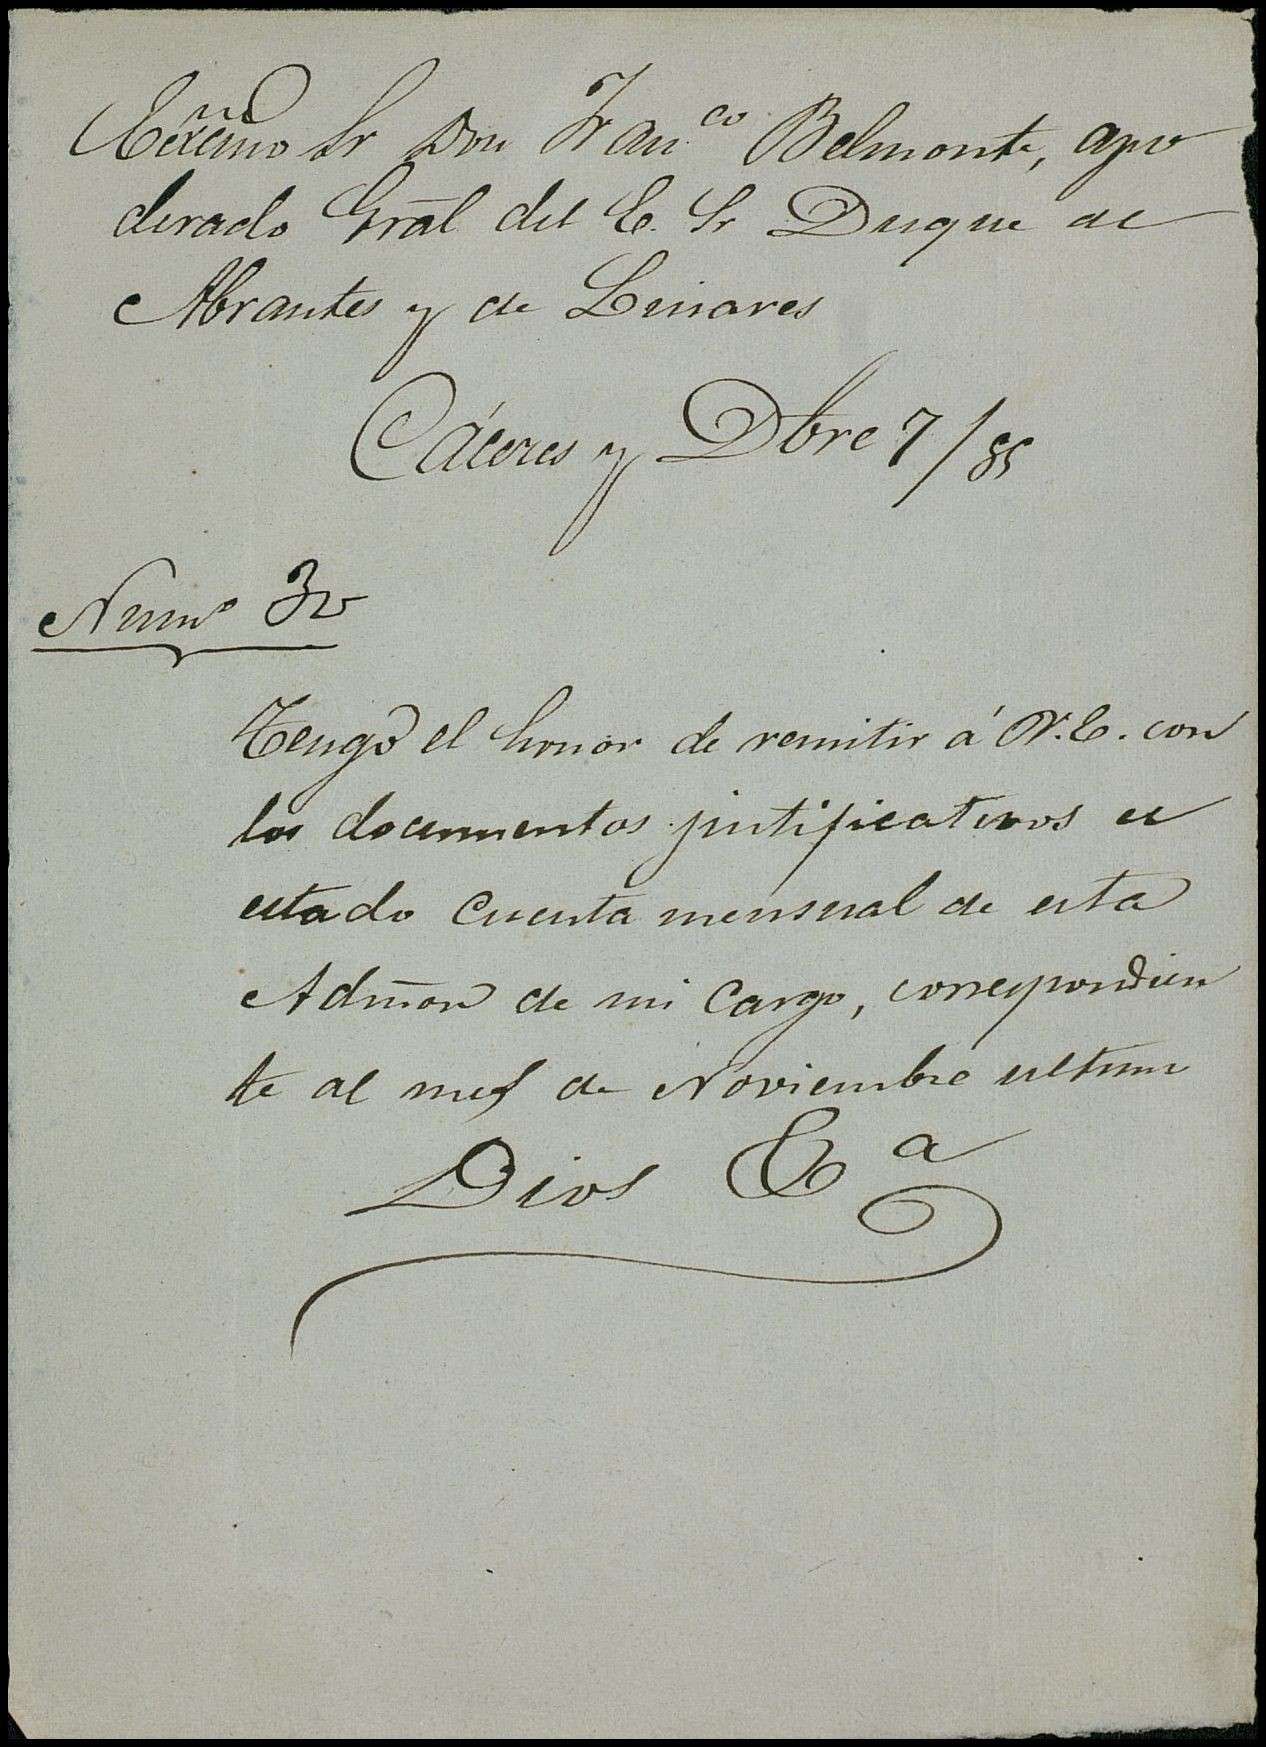 Excm̃o Sr Don Fran.co Belmonte, apo
derado Gral̃ del E. Sr Duque de
Abrantes y de Linares
Cáceres y Dbre 7/85
Numo 32
Tengo el honor de remitir á V.E. con
los documentos justificativos el
estado cuenta mensual de esta
Adm̃on de mi cargo, correspondien
te al mes de Noviembre ultimo
Dios Ea